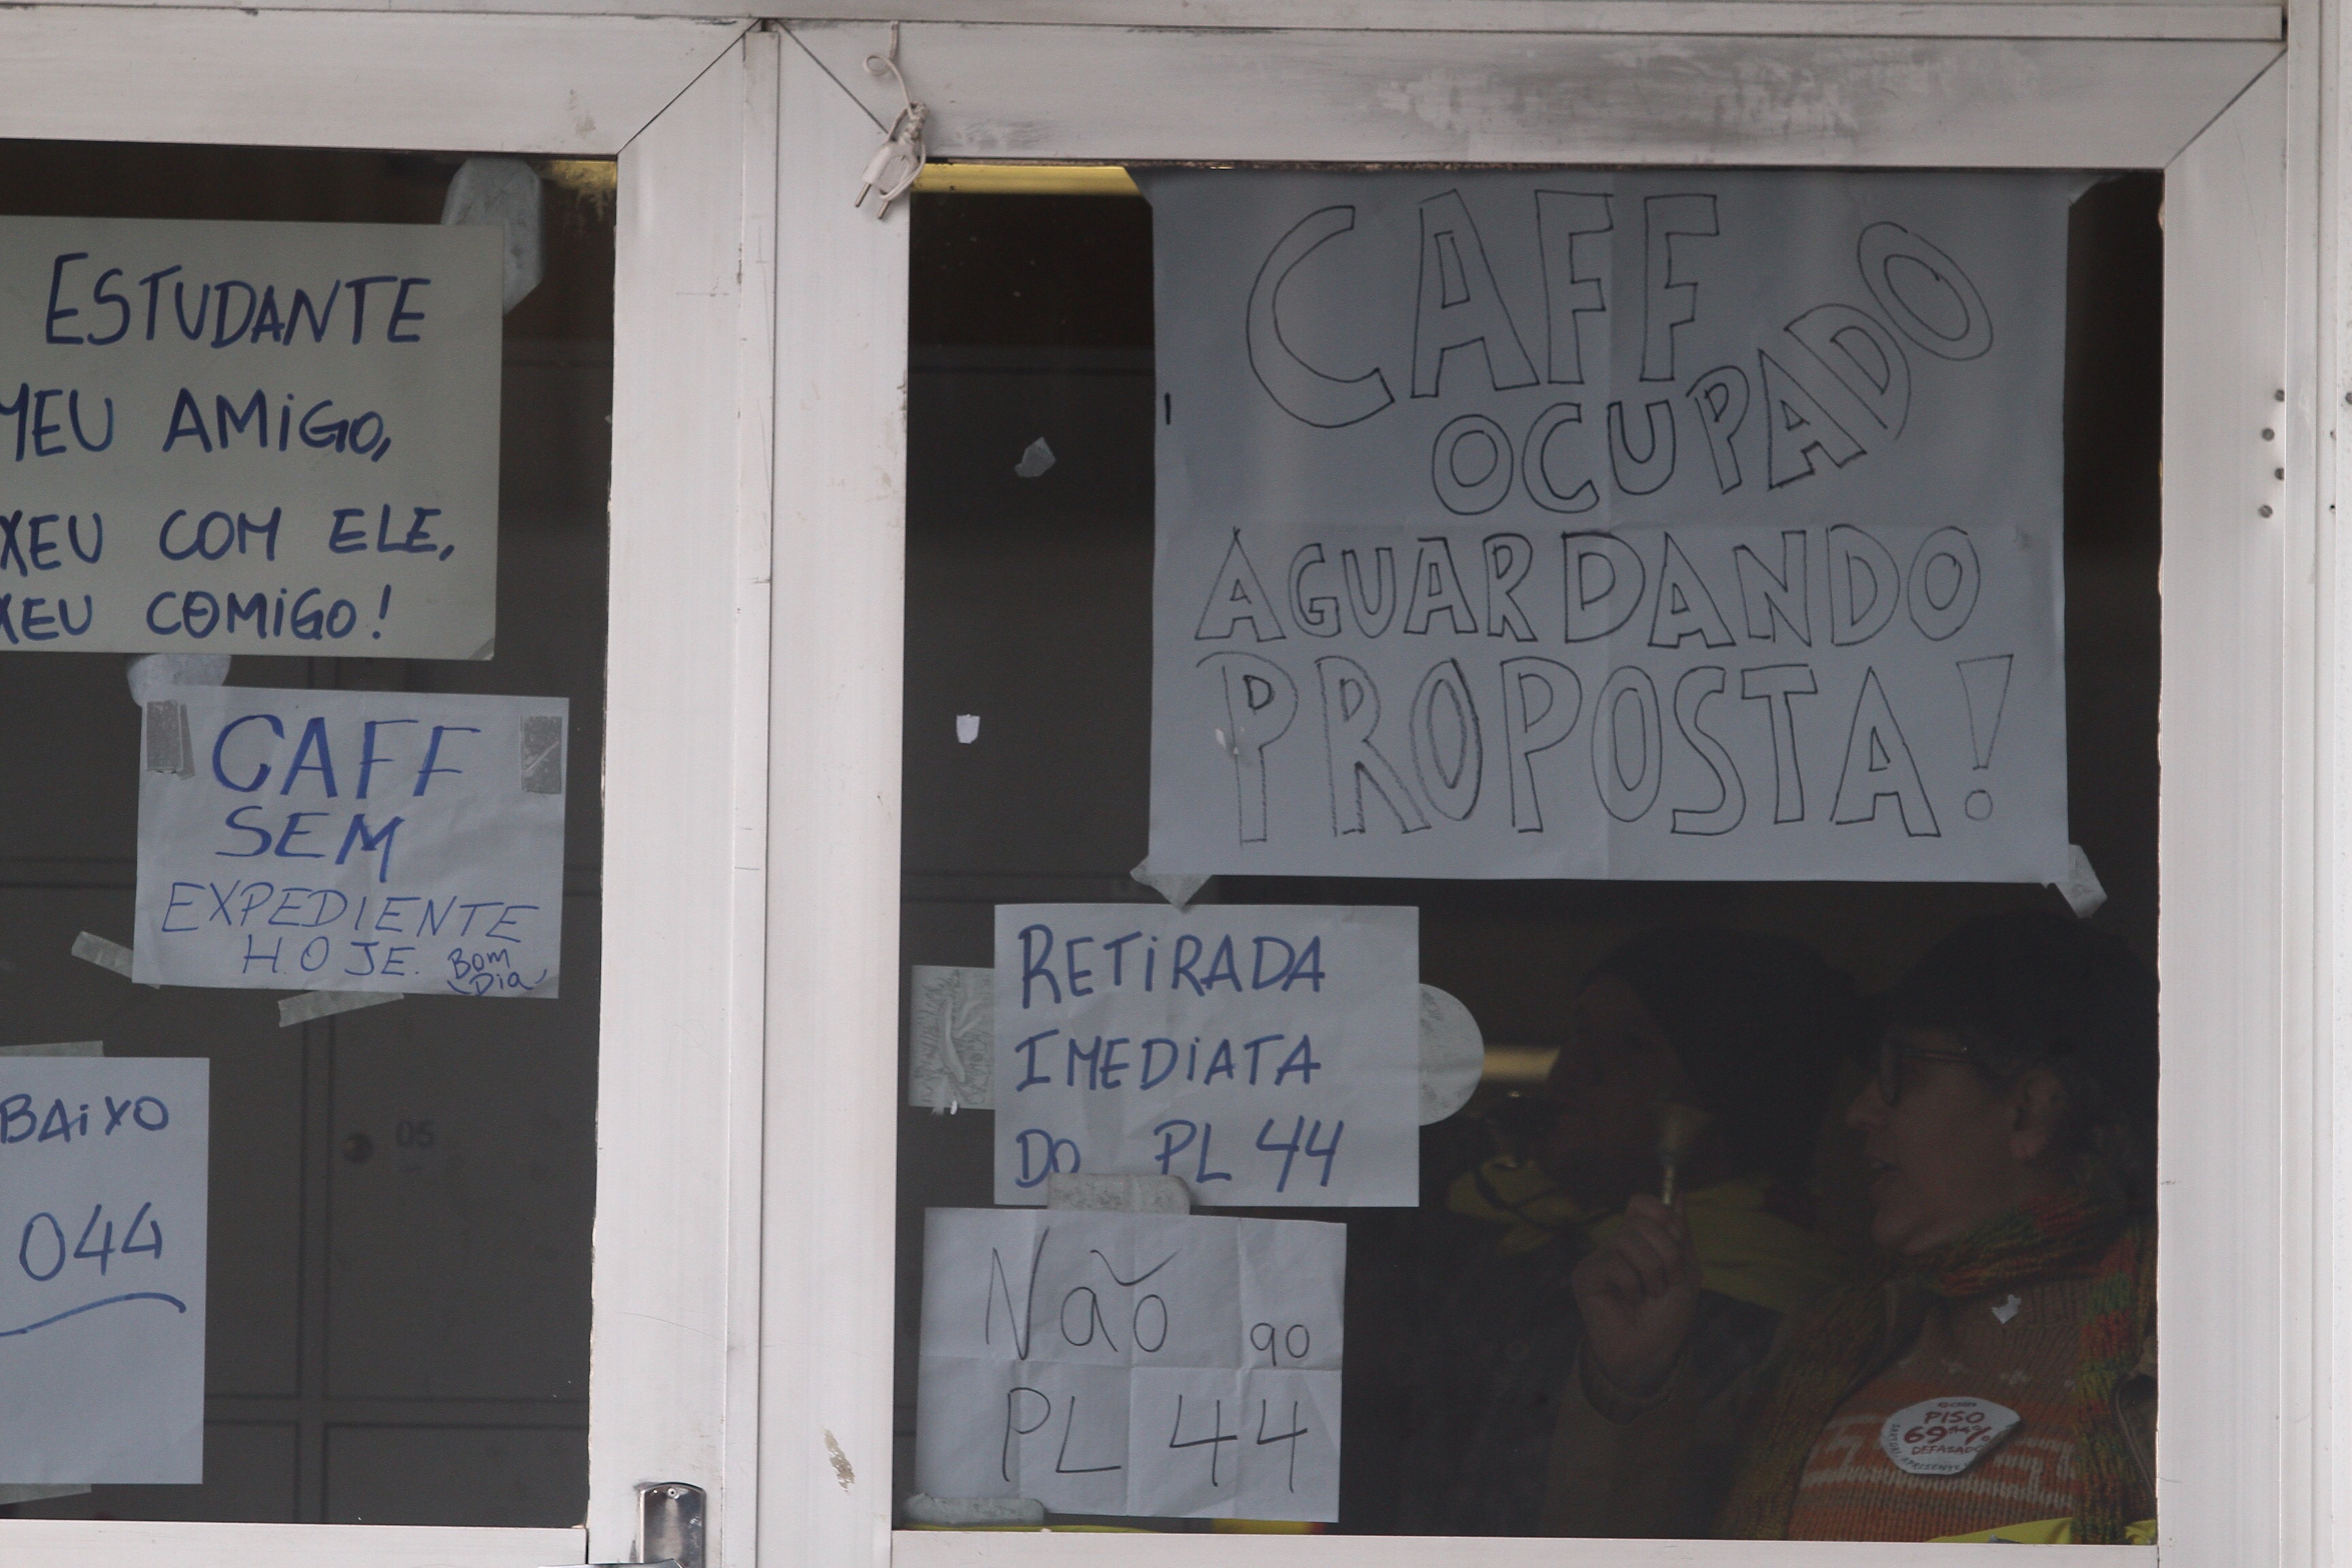 ESTUDANTE
MEU AMIGO,
XEU COM ELE,
XEU COMIGO!
CAFF
SEM
EXPEDIENTE
HOJE.
Bom
Dia
BAIXO
044
CAFF
OCUPADO
AGUARDANDO
PROPOSTA!
RETIRADA
IMEDIATA
DO PL 44
Não ao
PL 44
05
PISO
69,44%
DEFASADO